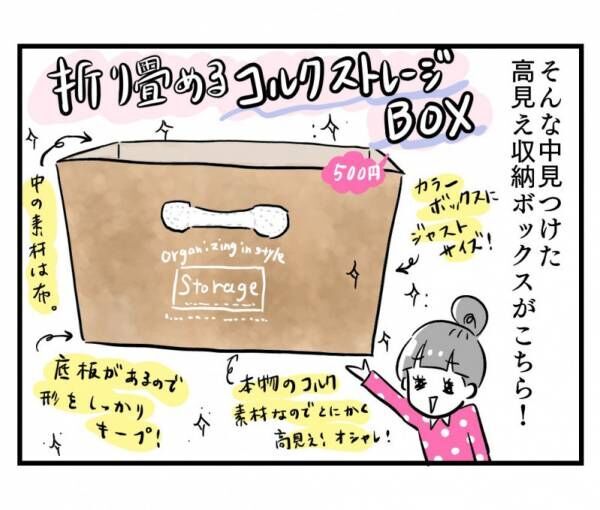 そんな中見つけた
高見え収納ボックスがこちら!
折り畳める コルクストレージ
BOX
500円
カラー
ボックスに
ジャスト
サイズ!
中の素材は布。
organizing in style
Storage
底板があるので
形をしっかり
キープ!
本物のコルク
素材なのでとにかく
高見え!オシャレ!